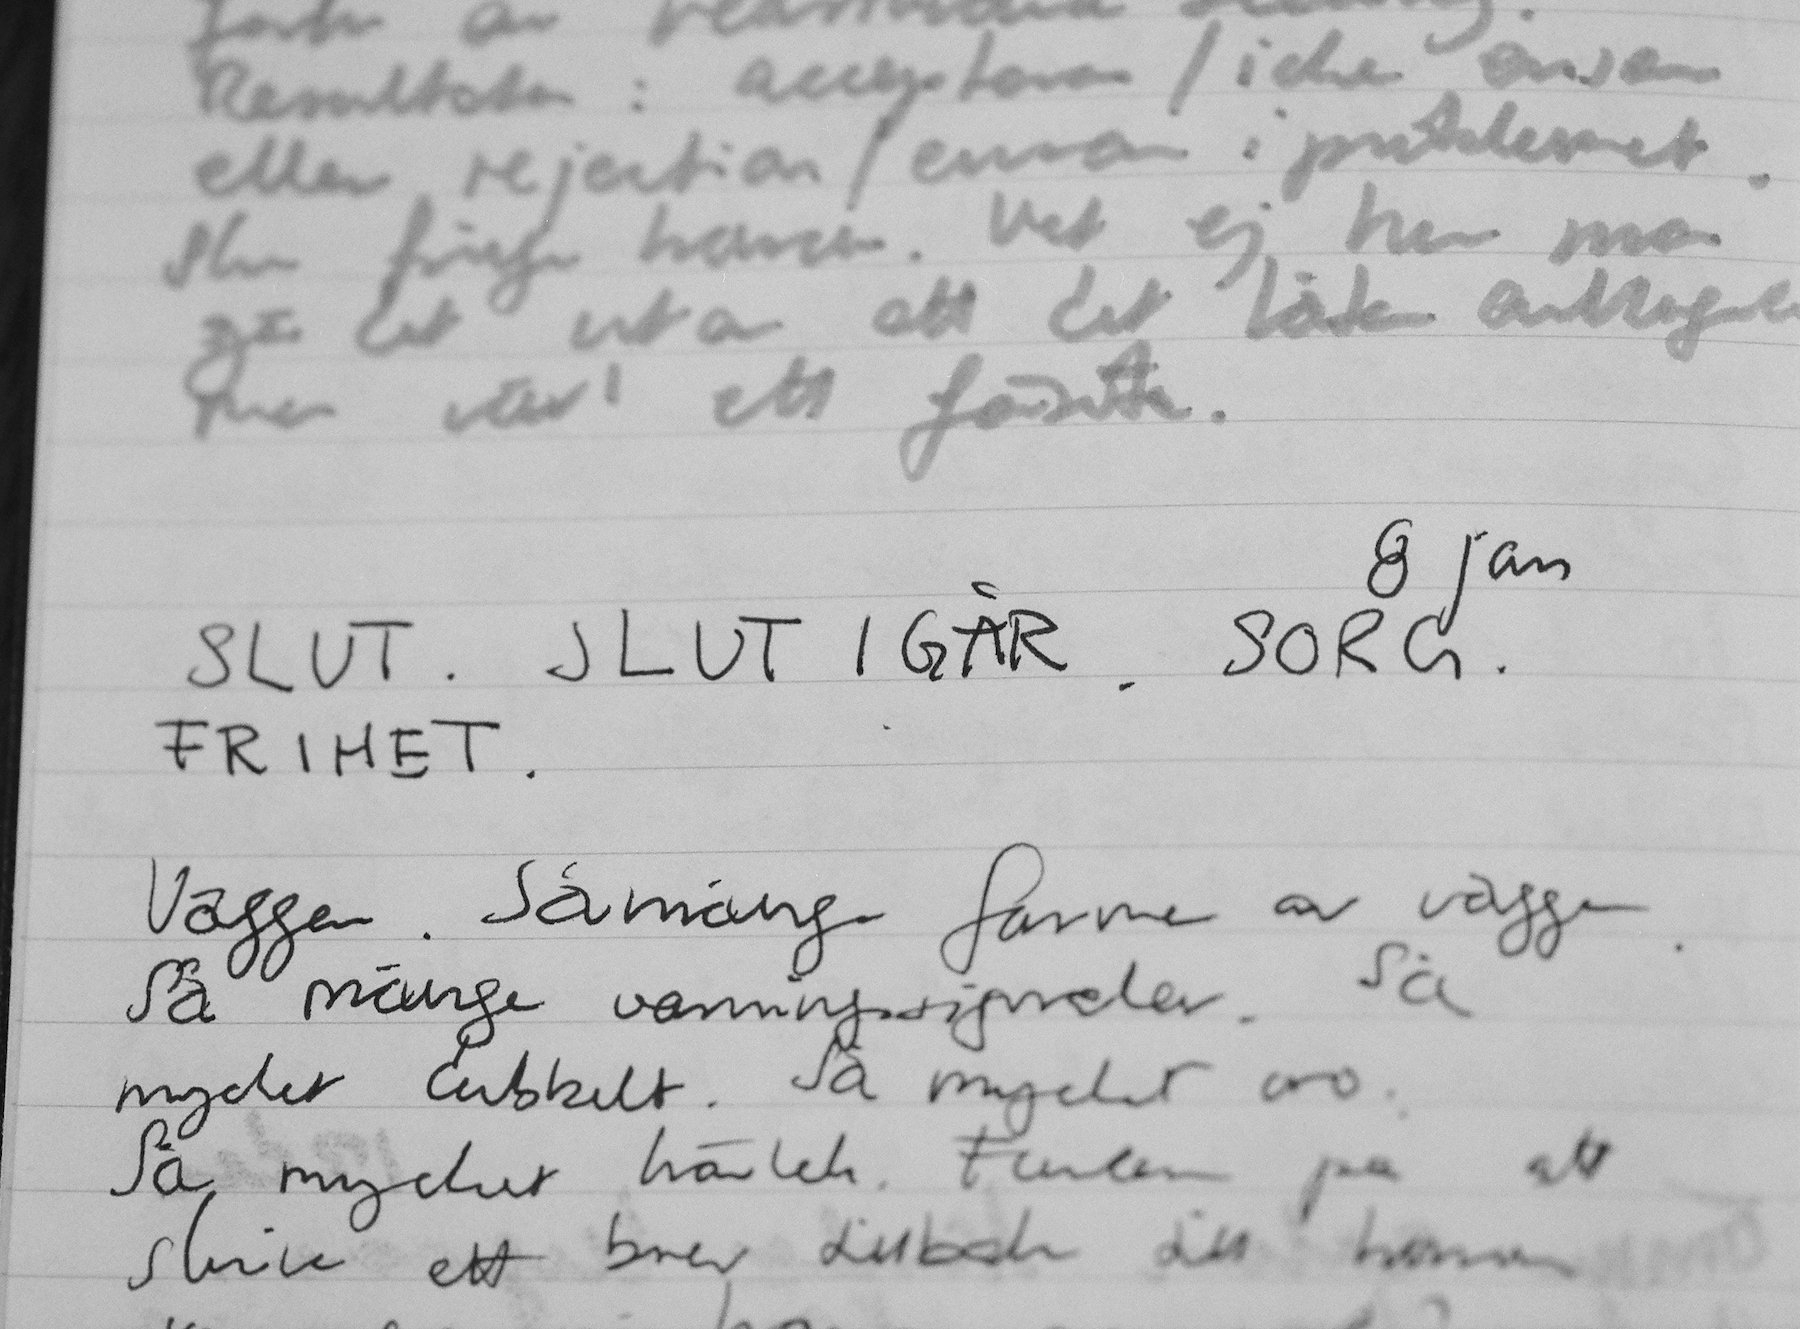 Resultatet: acceptans / icke ansvar
eller rejection / ensam i problemet.
Ska fråga honom. Vet ej hur man
gör det utan att det låter anklagande
men värt ett försök.
8 jan
SLUT. SLUT IGÅR. SORG.
FRIHET.
Väggen. Så många former av väggar.
Så många varningssignaler. Så
mycket dubbelt. Så mycket oro.
Så mycket kärlek. Funderar på att
skriva ett brev tillbaka till honom